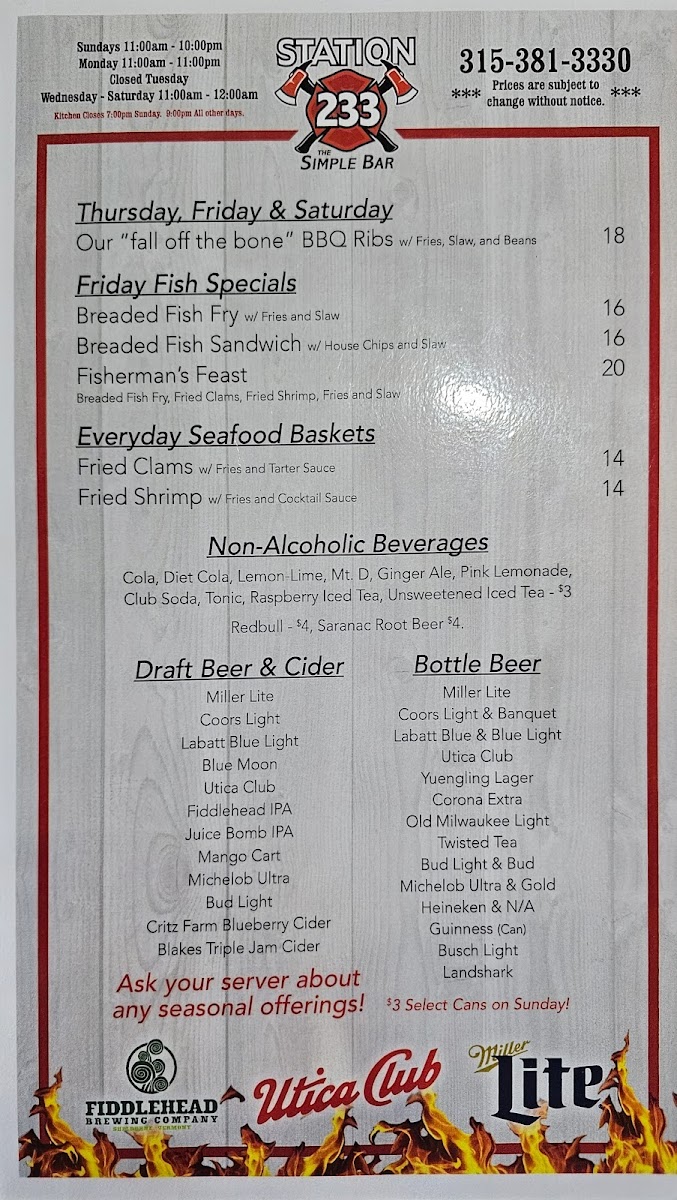 Sundays 11:00am - 10:00pm
Monday 11:00am - 11:00pm
Closed Tuesday
Wednesday - Saturday 11:00am - 12:00am
Kitchen Closes 7:00pm Sunday. 9:00pm All other days.
STATION
233
THE
SIMPLE BAR
315-381-3330
*** Prices are subject to
change without notice. ***
Thursday, Friday & Saturday
Our "fall off the bone" BBQ Ribs w/ Fries, Slaw, and Beans 18
Friday Fish Specials
Breaded Fish Fry w/ Fries and Slaw 16
Breaded Fish Sandwich w/ House Chips and Slaw 16
Fisherman's Feast 20
Breaded Fish Fry, Fried Clams, Fried Shrimp, Fries and Slaw
Everyday Seafood Baskets
Fried Clams w/ Fries and Tarter Sauce 14
Fried Shrimp w/ Fries and Cocktail Sauce 14
Non-Alcoholic Beverages
Cola, Diet Cola, Lemon-Lime, Mt. D, Ginger Ale, Pink Lemonade,
Club Soda, Tonic, Raspberry Iced Tea, Unsweetened Iced Tea - $3
Redbull - $4, Saranac Root Beer $4.
Draft Beer & Cider
Miller Lite
Coors Light
Labatt Blue Light
Blue Moon
Utica Club
Fiddlehead IPA
Juice Bomb IPA
Mango Cart
Michelob Ultra
Bud Light
Critz Farm Blueberry Cider
Blakes Triple Jam Cider
Ask your server about
any seasonal offerings!
Bottle Beer
Miller Lite
Coors Light & Banquet
Labatt Blue & Blue Light
Utica Club
Yuengling Lager
Corona Extra
Old Milwaukee Light
Twisted Tea
Bud Light & Bud
Michelob Ultra & Gold
Heineken & N/A
Guinness (Can)
Busch Light
Landshark
$3 Select Cans on Sunday!
FIDDLEHEAD
BREWING COMPANY
SHELBURNE, VERMONT
Utica Club
Miller
Lite